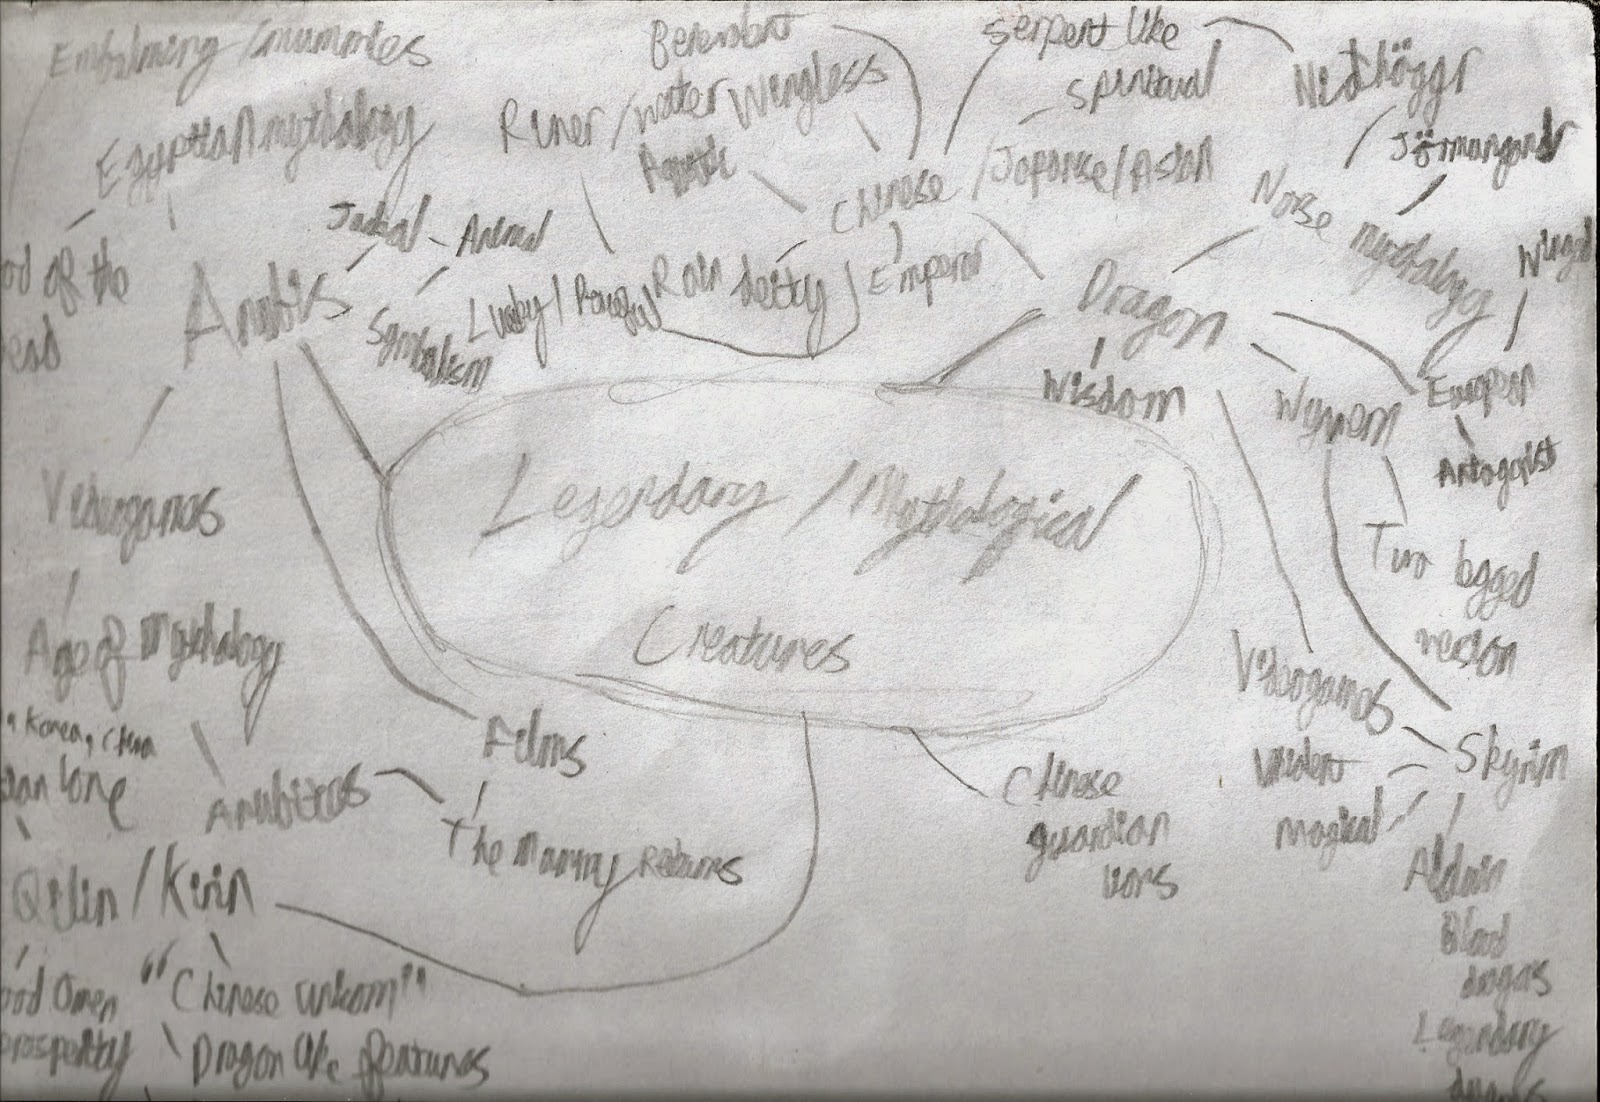 Embalming / mummies
Egyptian mythology
od of the
ead
Anubis
Jackal
Animal
Symbolism
Videogames
Age of Mythology
Anubites
Films
The Mummy Returns
Benevolent
River / water
Wingless
Aquatic
Lucky / Powerful
Rain deity
Emperor
Chinese / Japanese / Asian
Serpent like
Spiritual
Dragon
Wisdom
Norse mythology
Nidhöggr
Jörmungandr
Winged
European
Antagonist
Wyvern
Two legged
version
Videogames
Skyrim
Violent
Magical
Alduin
Blood
dragons
Legendary
dragons
Legendary / Mythological
Creatures
Chinese
guardian
lions
Korea, China
Qilin / Kirin
ood Omen
rosperity
"Chinese unicorn"
Dragon like features